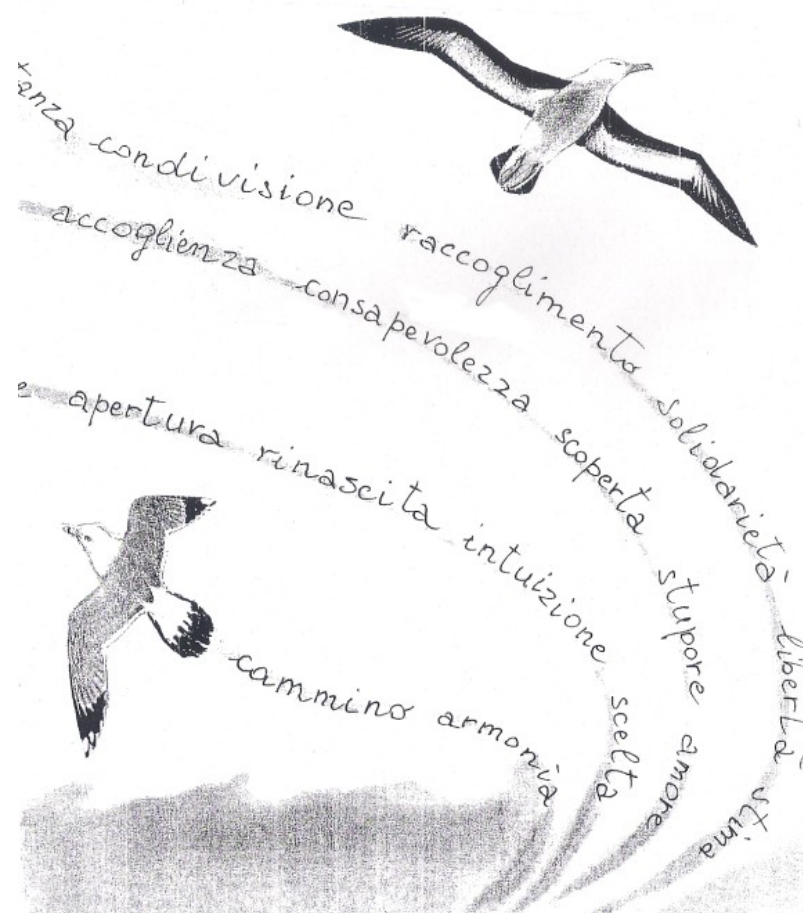 tanza condivisione raccoglimento solidarietà libertà stima
accoglienza consapevolezza scoperta stupore amore
e apertura rinascita intuizione scelta
cammino armonia